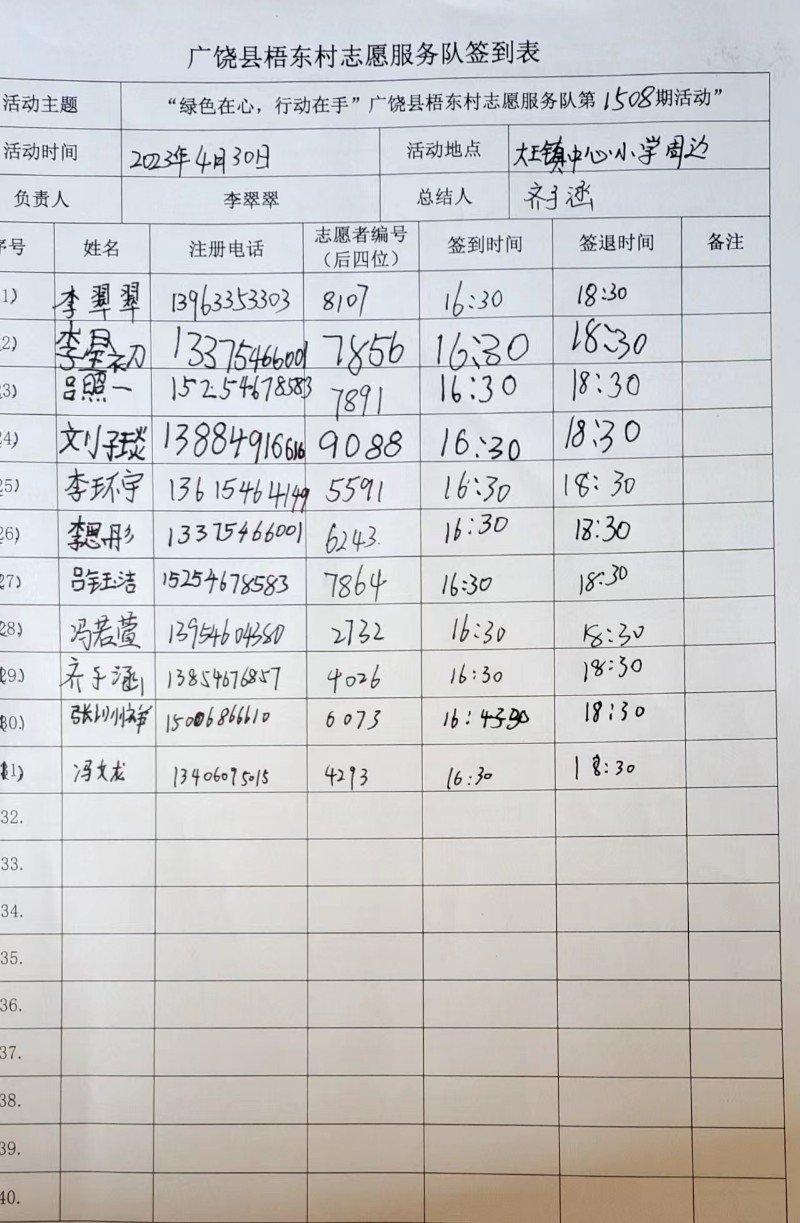 广饶县梧东村志愿服务队签到表
活动主题 “绿色在心，行动在手”广饶县梧东村志愿服务队第1508期活动”
活动时间 2023年4月30日 活动地点 大王镇中心小学周边
负责人 李翠翠 总结人 齐子涵
序号 姓名 注册电话 志愿者编号（后四位） 签到时间 签退时间 备注
1) 李翠翠 13963353303 8107 16:30 18:30
2) 13375466001 7856 16:30 18:30
23) 吕照一 15254678583 7891 16:30 18:30
24) 刘子琰 13884916616 9088 16:30 18:30
25) 李环宇 13615464149 5591 16:30 18:30
26) 李思彤 13375466001 6243 16:30 18:30
27) 吕钰洁 15254678583 7864 16:30 18:30
28) 冯若萱 13954604380 2732 16:30 18:30
29.) 齐子涵 13854676857 4026 16:30 18:30
30.) 15006866610 6073 16: 30 18:30
1) 冯文龙 13406095015 4293 16:30 18:30
32.
33.
34.
35.
36.
37.
38.
39.
40.